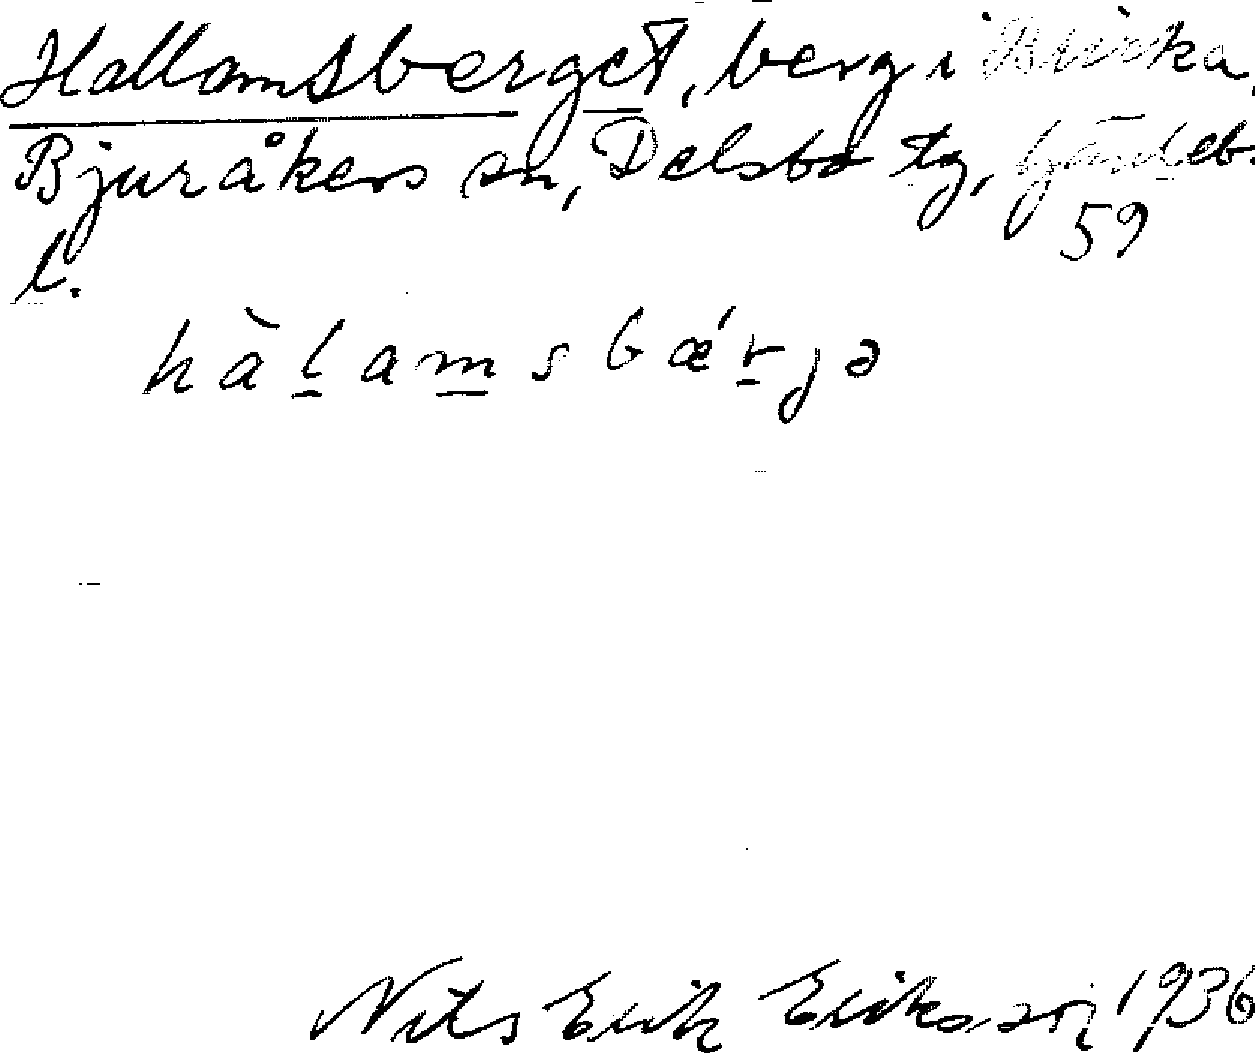 Hallamsberget, berg i Birka,
Bjuråkers sn, Delsbo tg, Gävleb.
59
l.
hàlamsbǽrjə
Nils Erik Eriksson 1936